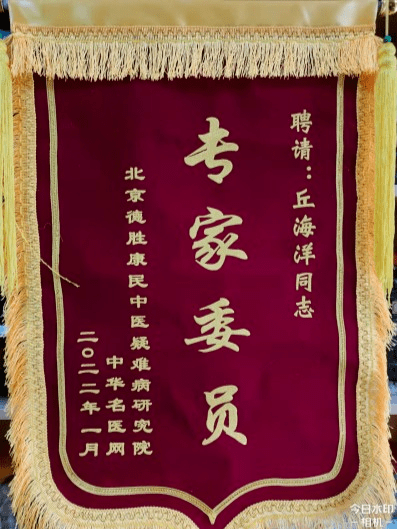 聘请：丘海洋同志
专家委员
北京德胜康民中医疑难病研究院
中华名医网
二〇二二年一月
今日水印
相机